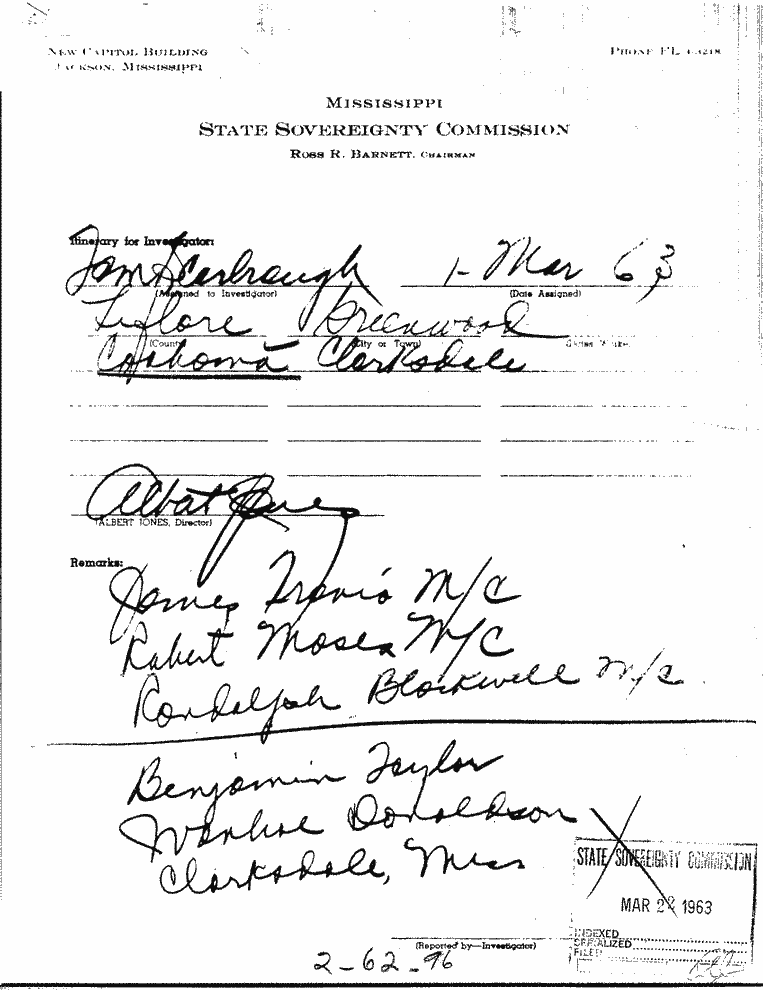 NEW CAPITOL BUILDING
JACKSON, MISSISSIPPI
PHONE FL 4-3218
MISSISSIPPI
STATE SOVEREIGNTY COMMISSION
ROSS R. BARNETT, CHAIRMAN
Itinerary for Investigator:
Tom Scarbrough 1- Mar 63
(Assigned to Investigator) (Date Assigned)
Leflore Greenwood
(County) (City or Town)
Coahoma Clarksdale
Albert Jones
(ALBERT JONES, Director)
Remarks:
James Travis M/C
Robert Moses M/C
Randolph Blackwell M/C
Benjamin Taylor
Ivanhoe Donaldson
Clarksdale, Miss
STATE SOVEREIGNTY COMMISSION
MAR 22 1963
INDEXED
SERIALIZED
FILED
(Reported by—Investigator)
2-62-96